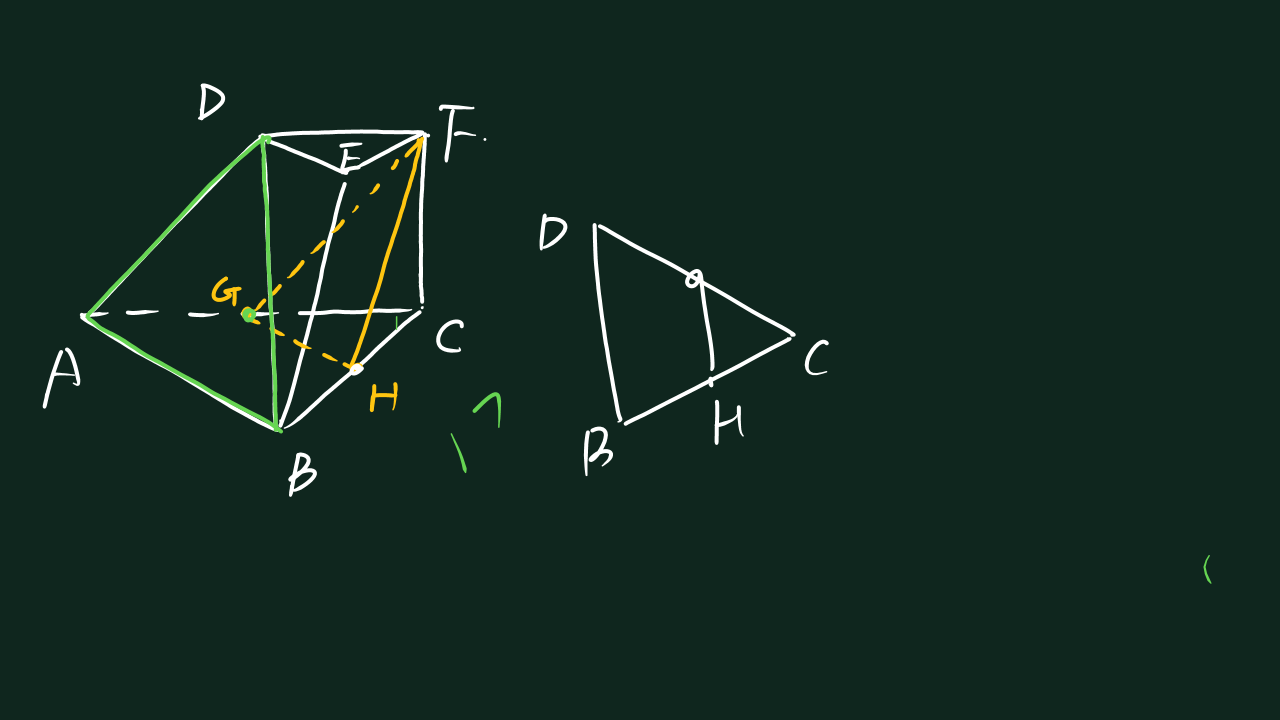 D
F
E
G
A
C
H
B
D
C
H
B